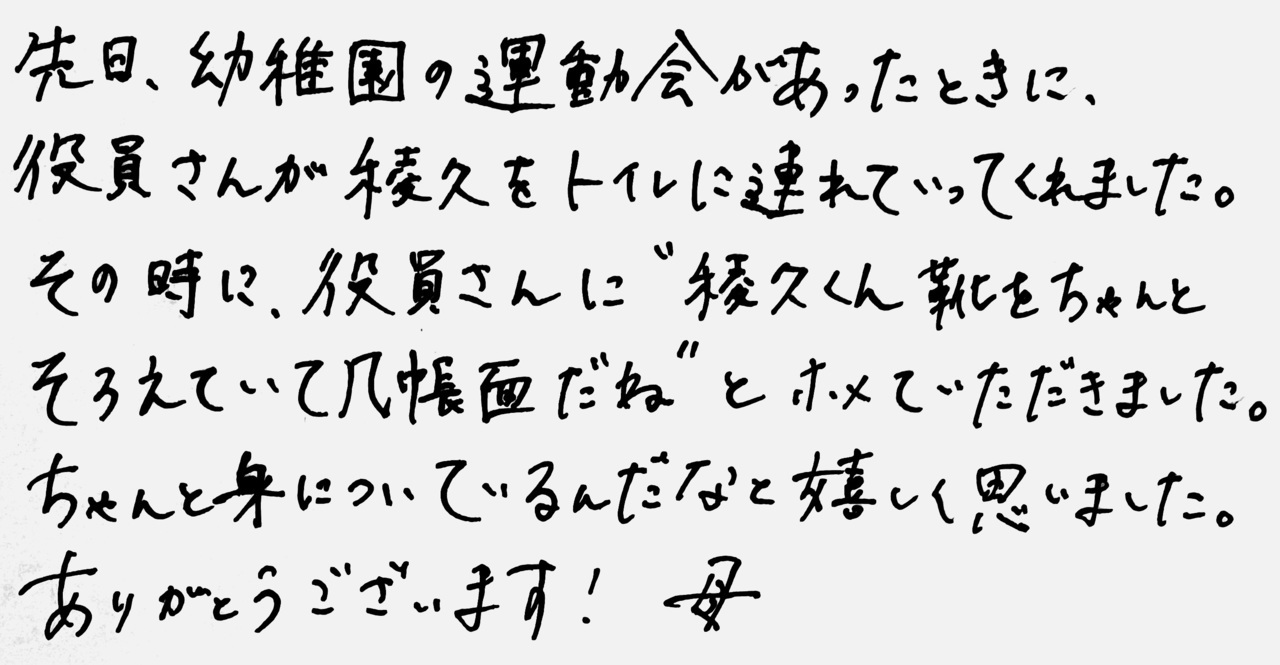 先日、幼稚園の運動会があったときに、
役員さんが稜久をトイレに連れていってくれました。
その時に、役員さんに〝稜久くん靴をちゃんと
そろえていて几帳面だね〟とホメていただきました。
ちゃんと身についているんだなと嬉しく思いました。
ありがとうございます! 母